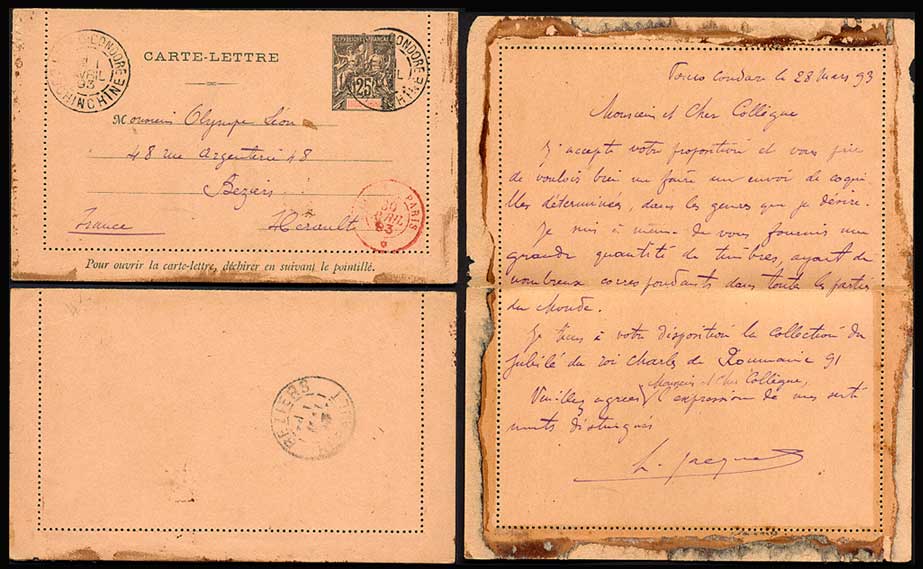 CARTE-LETTRE
REPUBLIQUE FRANÇAISE
25
AVRIL
93
PARIS
AVRIL
93
Monsieur Olympe Léon
48 rue Argenterie 48
Béziers
France Hérault
Pour ouvrir la carte-lettre, déchirer en suivant le pointillé.
BEZIERS
le 28 Mars 93
Monsieur et Cher Collègue
J'accepte votre proposition et vous prie
de vouloir bien me faire un envoi de coqui-
lles déterminées, dans les genres que je désire.
Je suis à même de vous fournir une
grande quantité de timbres, ayant de
nombreux correspondants dans toute les parties
du Monde.
Je tiens à votre disposition la collection du
Jubilé du roi Charles de Roumanie 91
Monsieur et Cher Collègue,
Veuillez agréer l'expression de mes senti
ments distingués